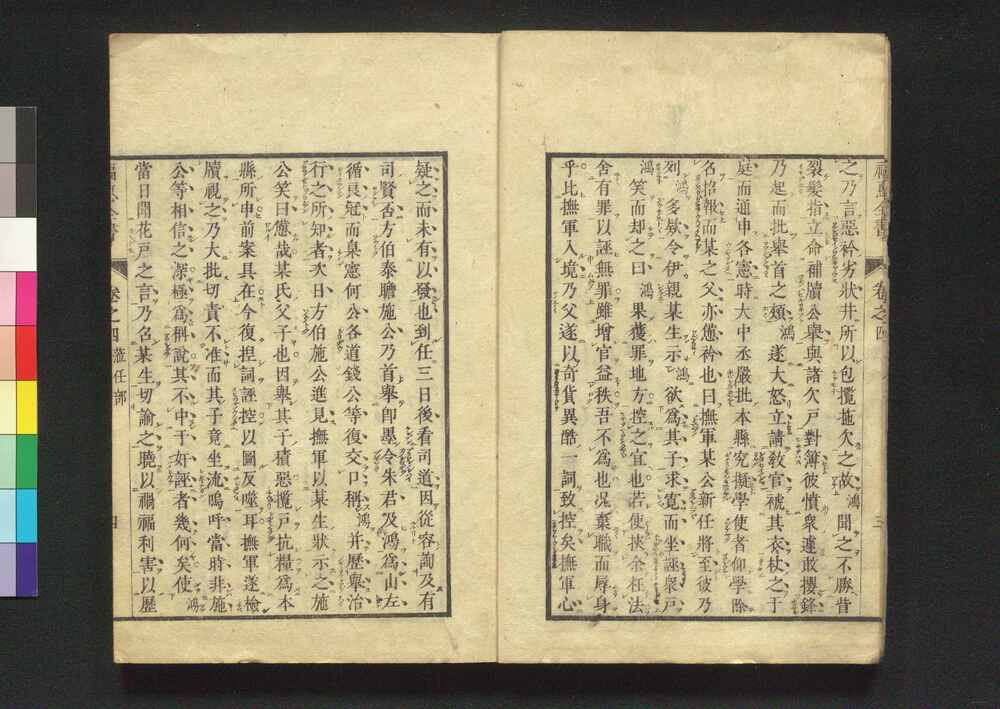 之乃言惡衿劣狀井所以包攬拖欠之故鴻聞之不勝眥
裂髮指立命補牘公舉與諸欠戶對簿彼憤衆遽敢攖鋒
乃起而批舉首之頰鴻遂大怒立請敎官褫其衣杖之于
庭而通申各憲時大中丞嚴批本縣究擬學使者仰學除
名招報而某之父亦憊衿也曰撫軍某公新任將至彼乃
列鴻多欵令伊親某生示鴻欲爲其子求寬而坐誣衆戶
鴻笑而却之曰鴻果獲罪地方控之宜也若使挾余枉法
舍有罪以誣無罪雖增官益秩吾不爲也况棄職而辱身
乎比撫軍入境乃父遂以奇貨異酷一詞致控矣撫軍心
福惠全書
卷之四
三
疑之而未有以發也到任三日後看司道因從容詢及有
司賢否方伯泰瞻施公乃首舉卽墨令朱君及鴻爲山左
循良冠而臬憲何公各道錢公等復交口稱鴻并歷舉治
行之所知者次日方伯施公進見撫軍以某生狀示之施
公笑曰憊哉某氏父子也因舉其子積惡攬戶抗糧爲本
縣所申前案具在今復捏詞誣控以圖反噬耳撫軍遂檢
牘視之乃大批切責不准而其子竟坐流嗚呼當時非施
公等相信之深極爲稱說其不中于奸誣者幾何矣使鴻
當日聞花戶之言乃名某生切諭之曉以禍福利害以歷
福惠全書
卷之四
涖任部
四